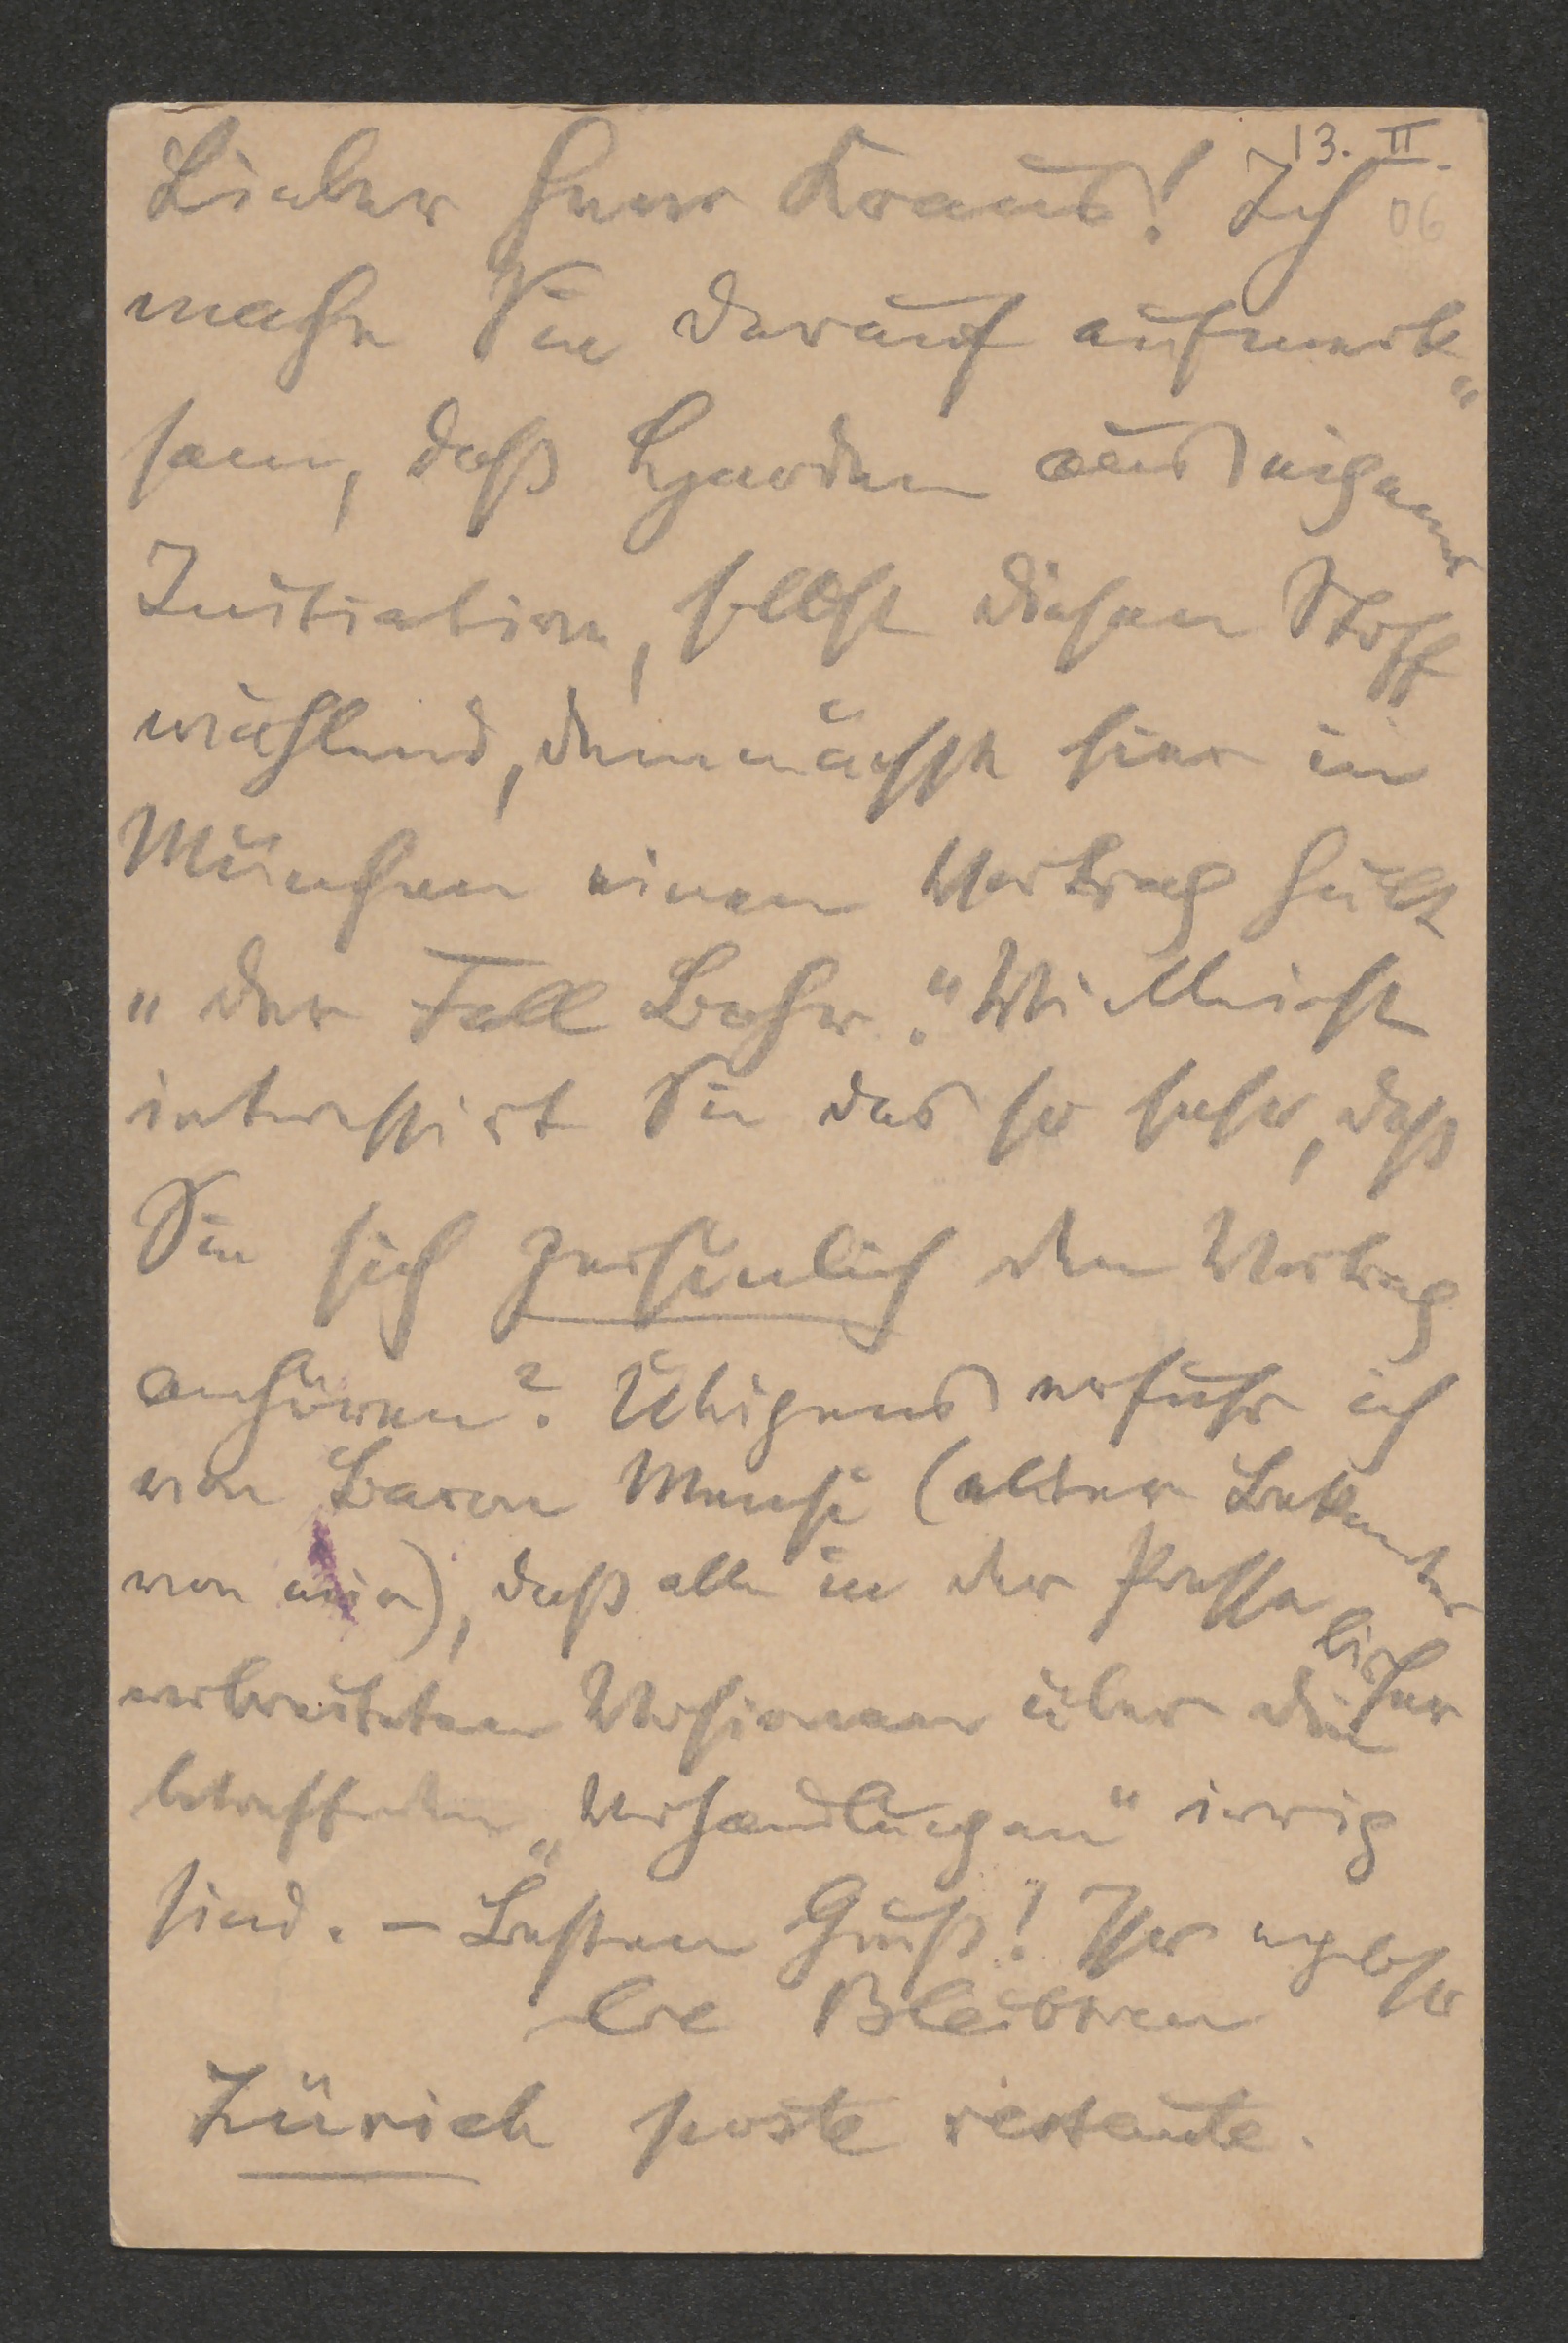 13. II.
06
Lieber Herr Kraus! Ich
mache Sie darauf aufmerk„
sam, daß Harden aus eigener
Initiative, selbst diesen Stoff
wählend, demnächst hier in
München einen Vortrag hält
„der Fall Bahr." Vielleicht
interessirt Sie das so sehr, daß
Sie sich persönlich den Vortrag
anhören? Übrigens erfuhr ich
von Baron Mensi (alter Bekannter
von mir), daß alle in der Presse bisher
verbreiteten Versionen über die
betreffenden „Verhandlungen" irrig
sind. – Besten Gruß! Ihr ergebster
Bleibtreu
Zürich poste restante.